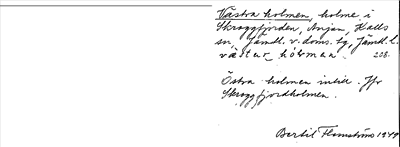 Västra holmen, holme i
Skroggfjorden, Anjan, Kalls
sn, Jämtl. v. doms. tg, Jämtl. l.
västur hólmen. 208.
Östra holmen intill. Jfr
Skroggfjordholmen.
Bertil Flemström 1949